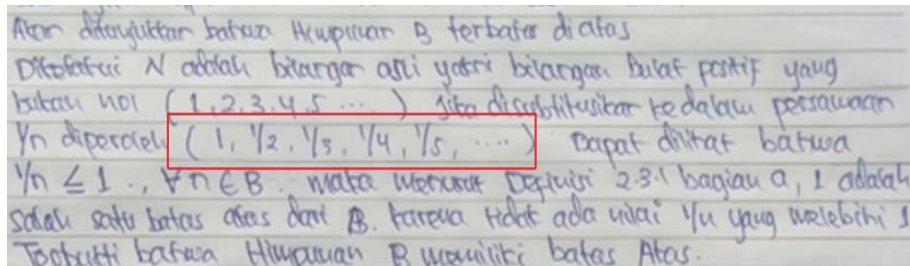 Akan ditunjukkan bahwa Himpunan B terbatas diatas
Diketahui N adalah bilangan asli yakni bilangan bulat positif yang
bukan nol (1, 2, 3, 4, 5 ....) jika disubtitusikan kedalam persamaan
1/n diperoleh (1, 1/2, 1/3, 1/4, 1/5, ....) Dapat dilihat bahwa
1/n ≤ 1 ., ∀n ∈ B. maka menurut Definisi 2.3.1 bagian a, 1 adalah
salah satu batas atas dari B. karena tidak ada nilai 1/n yang melebihi 1
Terbukti bahwa Himpunan B memiliki batas Atas.